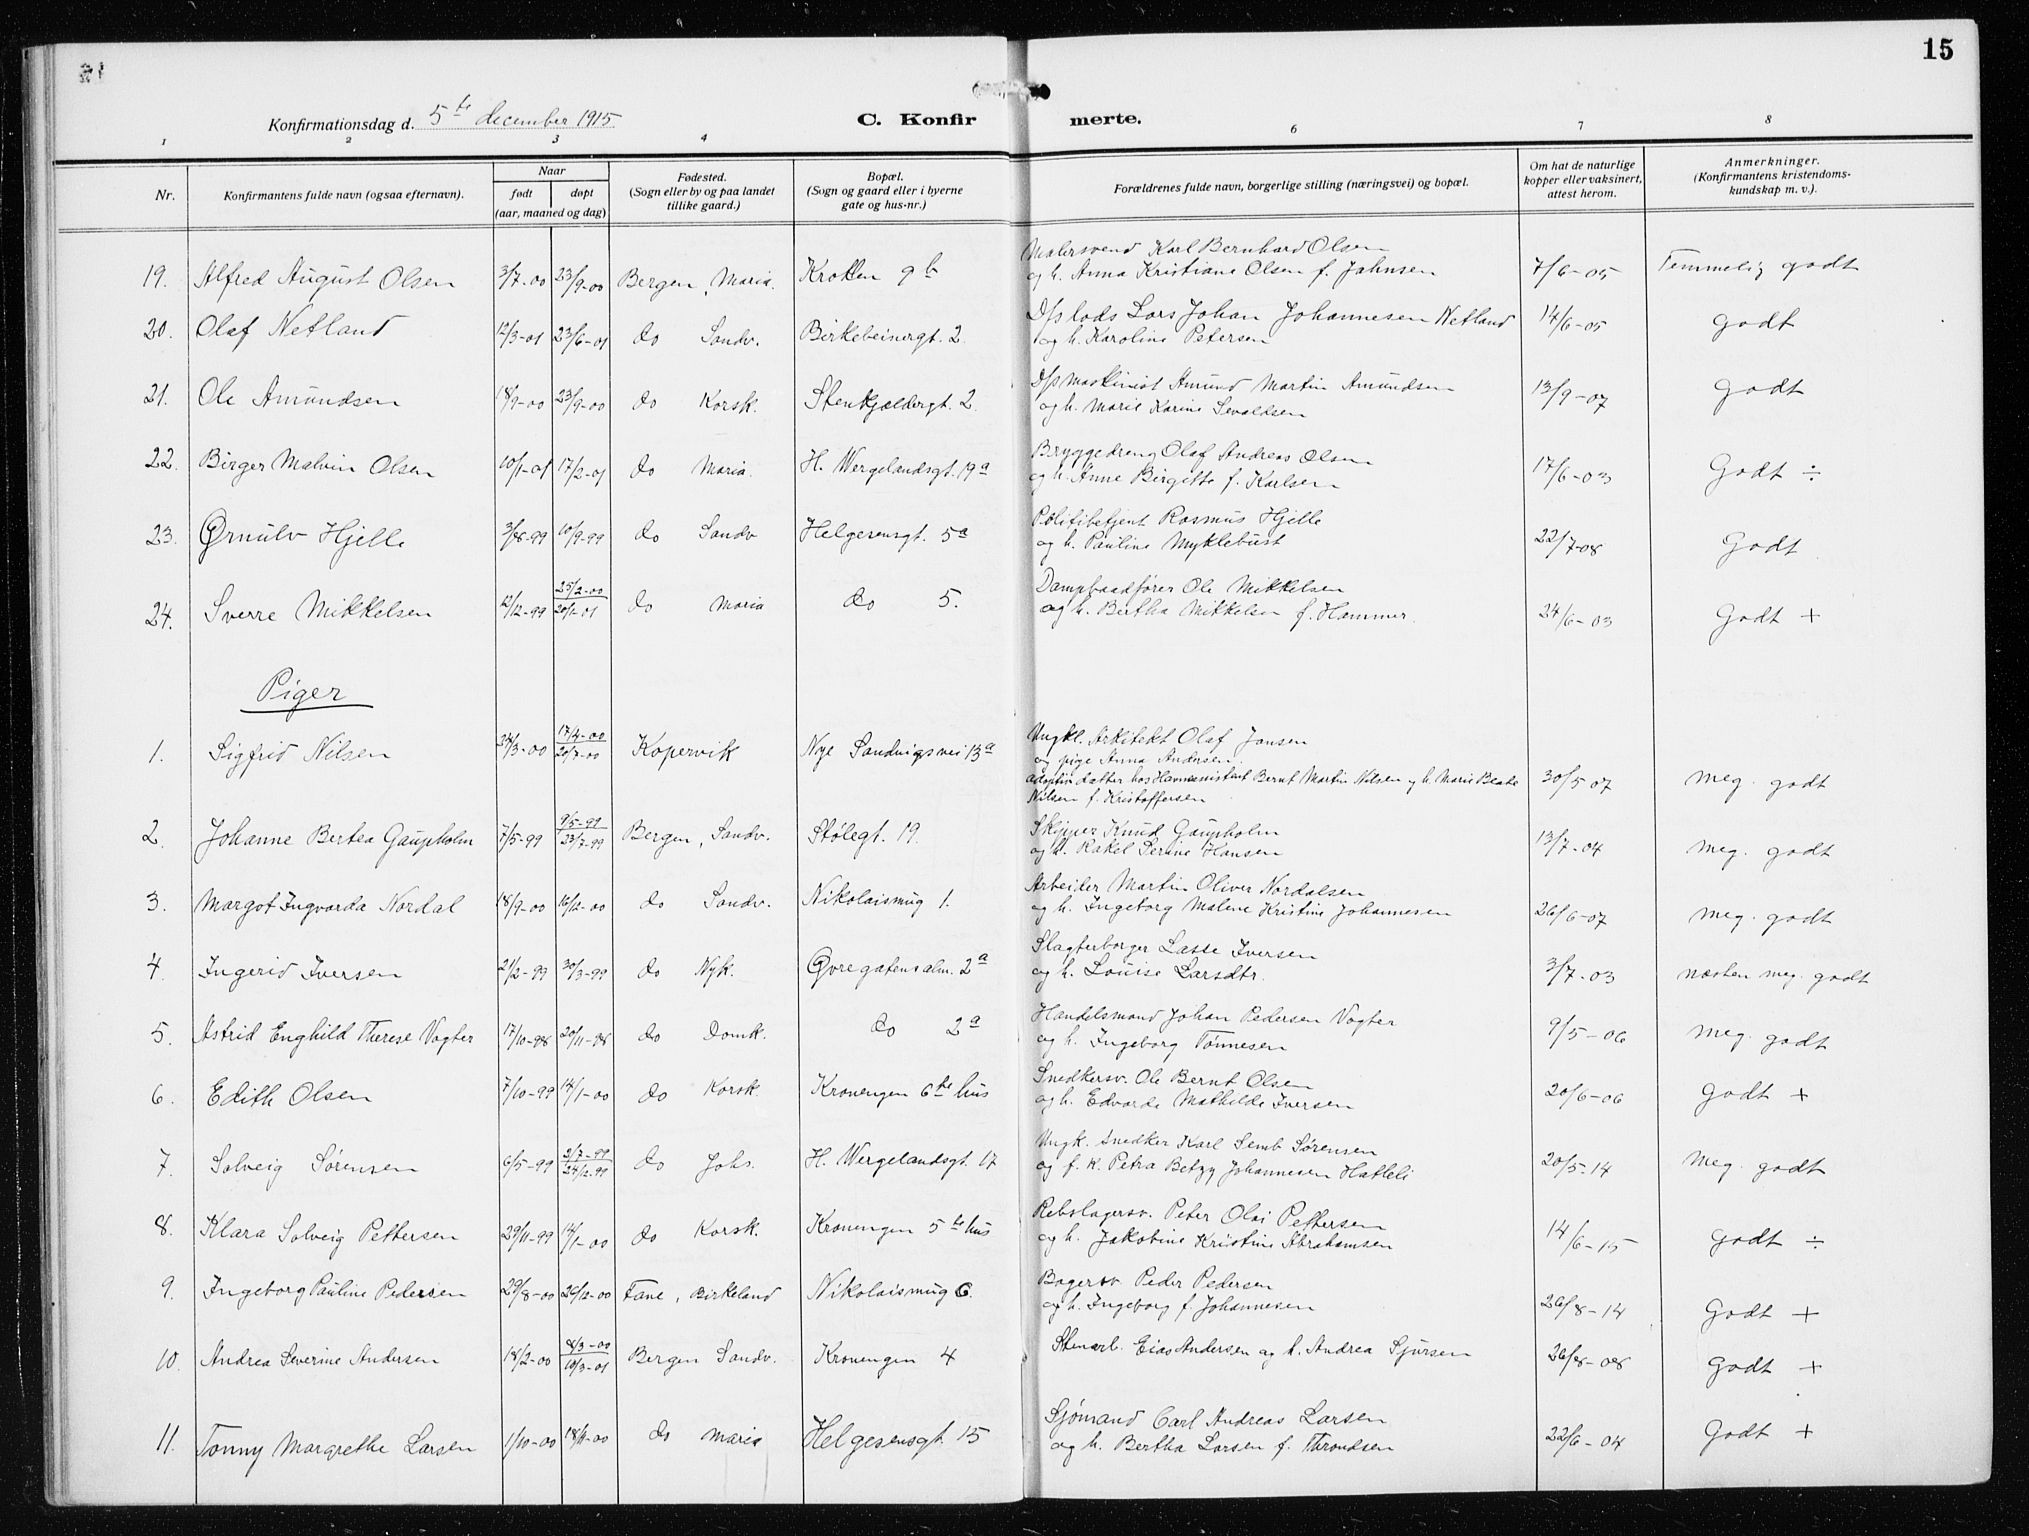 15
Konfirmationsdag d. 5te december 1915
C. Konfirmerte.
1 2 3 4 6 7 8
Nr. Konfirmantens fulde navn (ogsaa efternavn). Naar født døpt (aar, maaned og dag) Fødested. (Sogn eller by og paa landet tillike gaard.) Bopæl. (Sogn og gaard eller i byerne gate og hus-nr.) Forældrenes fulde navn, borgerlige stilling (næringsvei) og bopæl. Om hat de naturlige kopper eller vaksinert, attest herom. Anmerkninger. (Konfirmantens kristendoms-kundskap m. v.).
19. Alfred August Olsen 3/7-00 23/9-00 Bergen, Maria. Krokken 9b Malersvend Karl Bernhard Olsen
og h. Anna Kristiane Olsen f. Jahnsen 7/6-05 Temmelig godt
20. Olaf Netland 12/3-01 23/6-01 do Sandv. Birkebeinergt. 2. D/s lods Lars Johan Johannesen Netland
og h. Karoline Petersen 14/6-05 godt
21. Ole Amundsen 18/9-00 23/9-00 do Korsk. Stenkjeldergt. 2. D/s maskinist Amund Martin Amundsen
og h. Marie Karine Sevaldsen 13/9-07 godt
22. Birger Malvin Olsen 10/1-01 17/2-01 do Maria. H. Wergelandsgt. 19a Bryggedreng Olaf Andreas Olsen
og h. Anne Birgitte f. Karlsen 17/6-03 Godt ÷
23. Ørnulv Hjelle 3/8-99 10/9-99 do Sandv Helgesensgt. 5a Politibetjent Rasmus Hjelle
og h. Pauline Myklebust 22/7-08 Godt
24. Sverre Mikkelsen 12/12-99 25/2-00 20/1-01 do Maria do 5. Dampbaadfører Ole Mikkelsen
og h. Bertha Mikkelsen f. Hammer. 24/6-03 Godt +
Piger
1. Sigfrid Nilsen /3-00 17/4-00 20/7-00 Kopervik Nye Sandvigsvei 13a Ungkl. Arkitekt Olaf Jansen
og pige Anna Andersen.
adoptivdatter hos Bernt Martin Nilsen og h. Marie Beate
Nilsen f. Kristoffersen 30/5 07 meg. godt
2. Johanne Bertea Gaupholm 7/5-99 9/5-99 23/7-99 Bergen, Sandv. Stølegt. 19. Skipper Knud Gaupholm
og h. Rakel Serine Hansen 13/7-04 meg. godt
3. Margot Ingvarda Nordal 18/9-00 16/12-00 do Sandv. Nikolaismug 1. Arbeider Martin Oliver Nordalsen
og h. Ingeborg Malene Kristine Johannesen 26/6-07 meg. godt
4. Ingerid Iversen 21/2-99 30/3-99 do Nyk. Øvregatens alm. 2a Slagterborger Lasse Iversen
og h. Louise Larsdtr. 3/7-03 næsten meg. godt
5. Astrid Enghild Therese Vogter 17/10-98 20/11-98 do Domk. do 2a Handelsmand Johan Pedersen Vogter
og h. Ingeborg Tönnesen 9/5-06 Meg. godt
6. Edith Olsen 7/10-99 14/1-00 do Korsk. Kronengen 6te hus Snedkersv. Ole Bernt Olsen
og h. Edvarda Mathilde Iversen 20/6-06 Godt +
7. Solveig Sørensen 6/5-99 2/7-99 24/12-99 do Johs. H. Wergelandsgt. 17 Ungk. Snedker Karl Semb Sørensen
og f. k. Petra Betzy Johannesen Hatleli 20/5-14 Meg. godt
8. Klara Solveig Pettersen 29/11-99 14/1-00 do Korsk. Kronengen 5te hus Rebslagersv. Peter Olai Pettersen
og h. Jakobine Kristine Abrahamsen 14/6-15 godt ÷
9. Ingeborg Pauline Pedersen 29/8-00 26/12-00 Fane, Birkeland Nikolaismug 6. Bagersv. Peder Pedersen
og h. Ingeborg f. Johannesen 26/8-14 Godt +
10. Andrea Severine Andersen 18/2-00 8/3-00 10/3-01 Bergen Sandv. Kronengen 4 Stenarb. Eias Andersen og h. Andrea Sjursen 26/8-08 Godt +
11. Tonny Margrethe Larsen 1/10-00 18/11-00 do Maria Helgesensgt. 15 Sjømand Carl Andreas Larsen
og h. Bertha Larsen f. Throndsen 22/6-04 Godt +